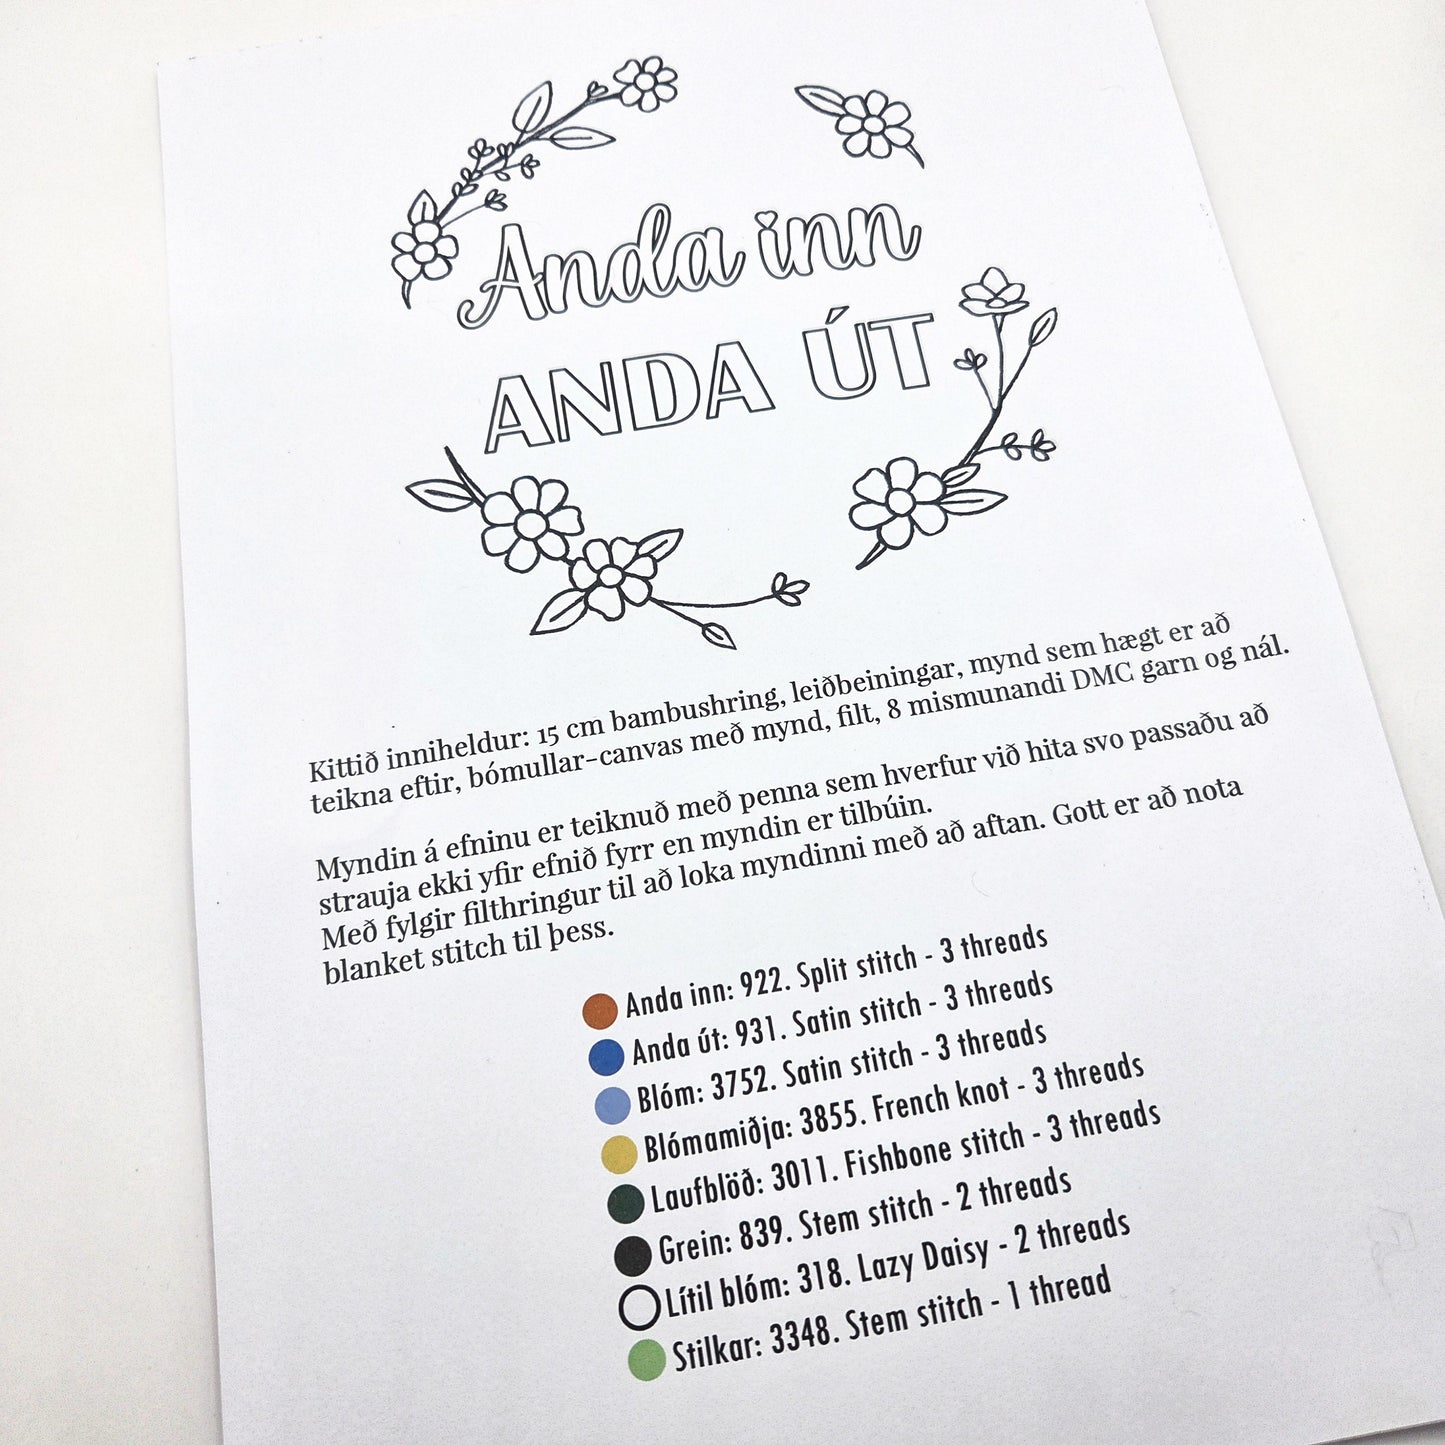 Anda inn
ANDA ÚT
Kittið inniheldur: 15 cm bambushring, leiðbeiningar, mynd sem hægt er að
teikna eftir, bómullar-canvas með mynd, filt, 8 mismunandi DMC garn og nál.
Myndin á efninu er teiknuð með penna sem hverfur við hita svo passaðu að
strauja ekki yfir efnið fyrr en myndin er tilbúin.
Með fylgir filthringur til að loka myndinni með að aftan. Gott er að nota
blanket stitch til þess.
Anda inn: 922. Split stitch - 3 threads
Anda út: 931. Satin stitch - 3 threads
Blóm: 3752. Satin stitch - 3 threads
Blómamiðja: 3855. French knot - 3 threads
Laufblöð: 3011. Fishbone stitch - 3 threads
Grein: 839. Stem stitch - 2 threads
Lítil blóm: 318. Lazy Daisy - 2 threads
Stilkar: 3348. Stem stitch - 1 thread